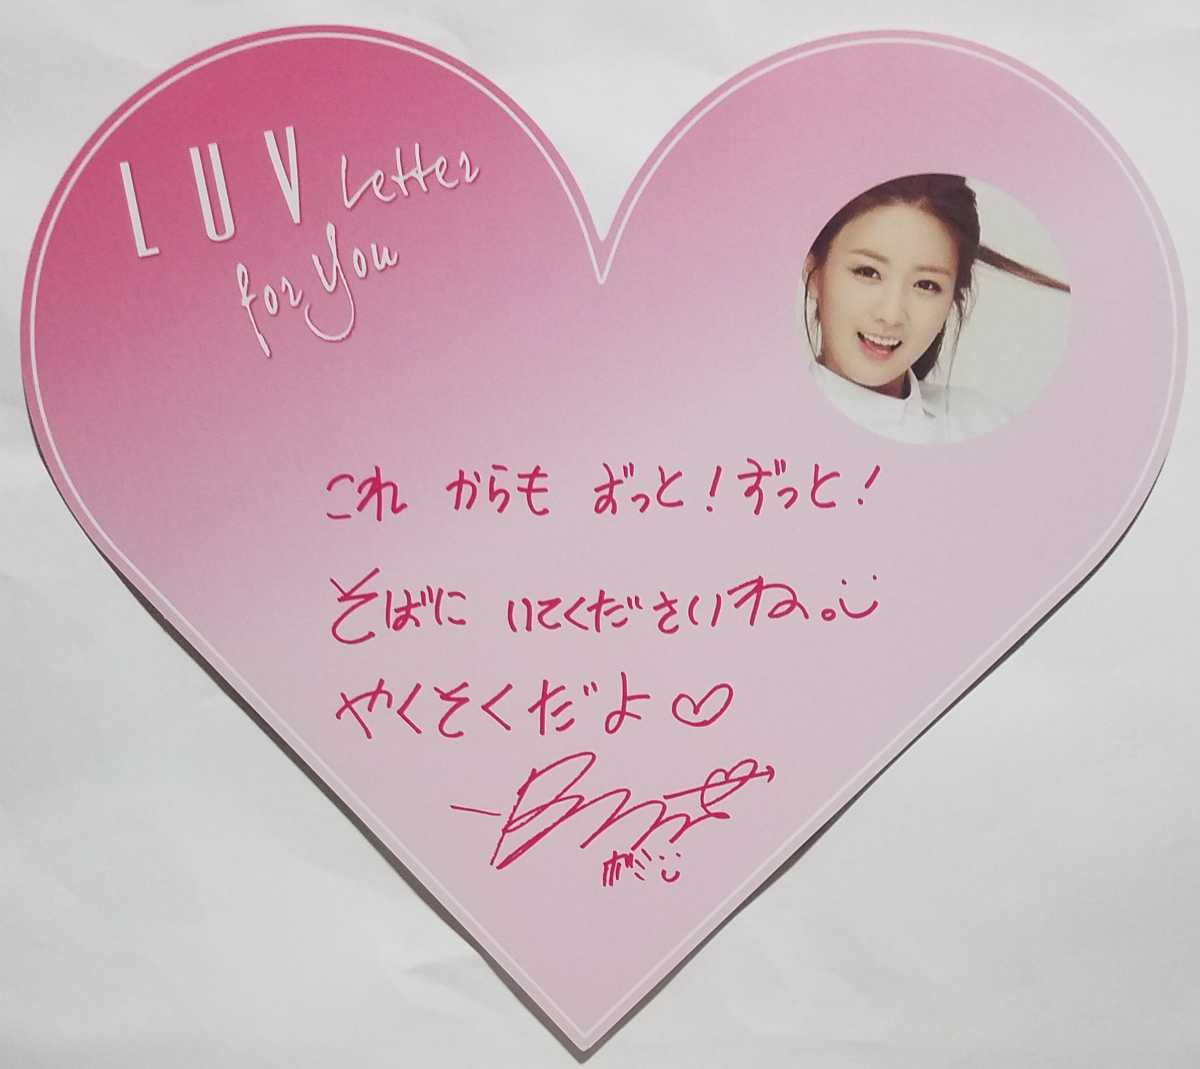 LUV Letter
for You
これ からも ずっと!ずっと!
そばに いてくださいね。
やくそくだよ♡
ボミ